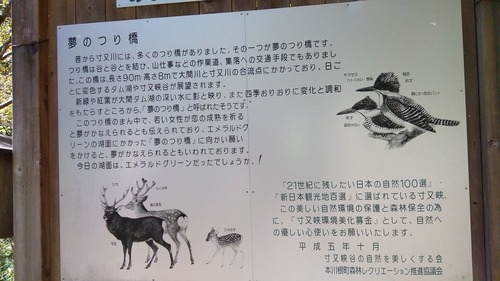 夢のつり橋
昔から寸又川には、多くのつり橋がありました。その一つが夢のつり橋です。
つり橋は谷と谷とを結び、山仕事などの作業道、集落への交通手段でもありまし
た。この橋は、長さ90m 高さ8mで大間川と寸又川の合流点にかかっており、日ご
とに変色するダム湖や寸又峡谷が展望されます。
新緑や紅葉が大間ダム湖の深い水に影と映り、また四季おりおりに変化と調和
をもたらすところから、「夢のつり橋」と呼ばれたそうです。
このつり橋のまん中で、若い女性が恋の成熟を祈る
と夢がかなえられるとも伝えられており、エメラルドグ
リーンの湖面にかかった『夢のつり橋』に向かい願い
をかけると、夢がかなえられるともいわれております。
今日の湖面は、エメラルドグリーンだったでしょうか。
ヤマセミ
『21世紀に残したい日本の自然100選』・
『新日本観光地百選』に選ばれている寸又峡。
この美しい自然環境の保護と森林保全の為
に、「寸又峡環境美化募金」として、自然へ
の優しい心使いをお願いいたします。
平成五年十月
寸又峡谷の自然を美しくする会
本川根町森林レクリエーション推進協議会